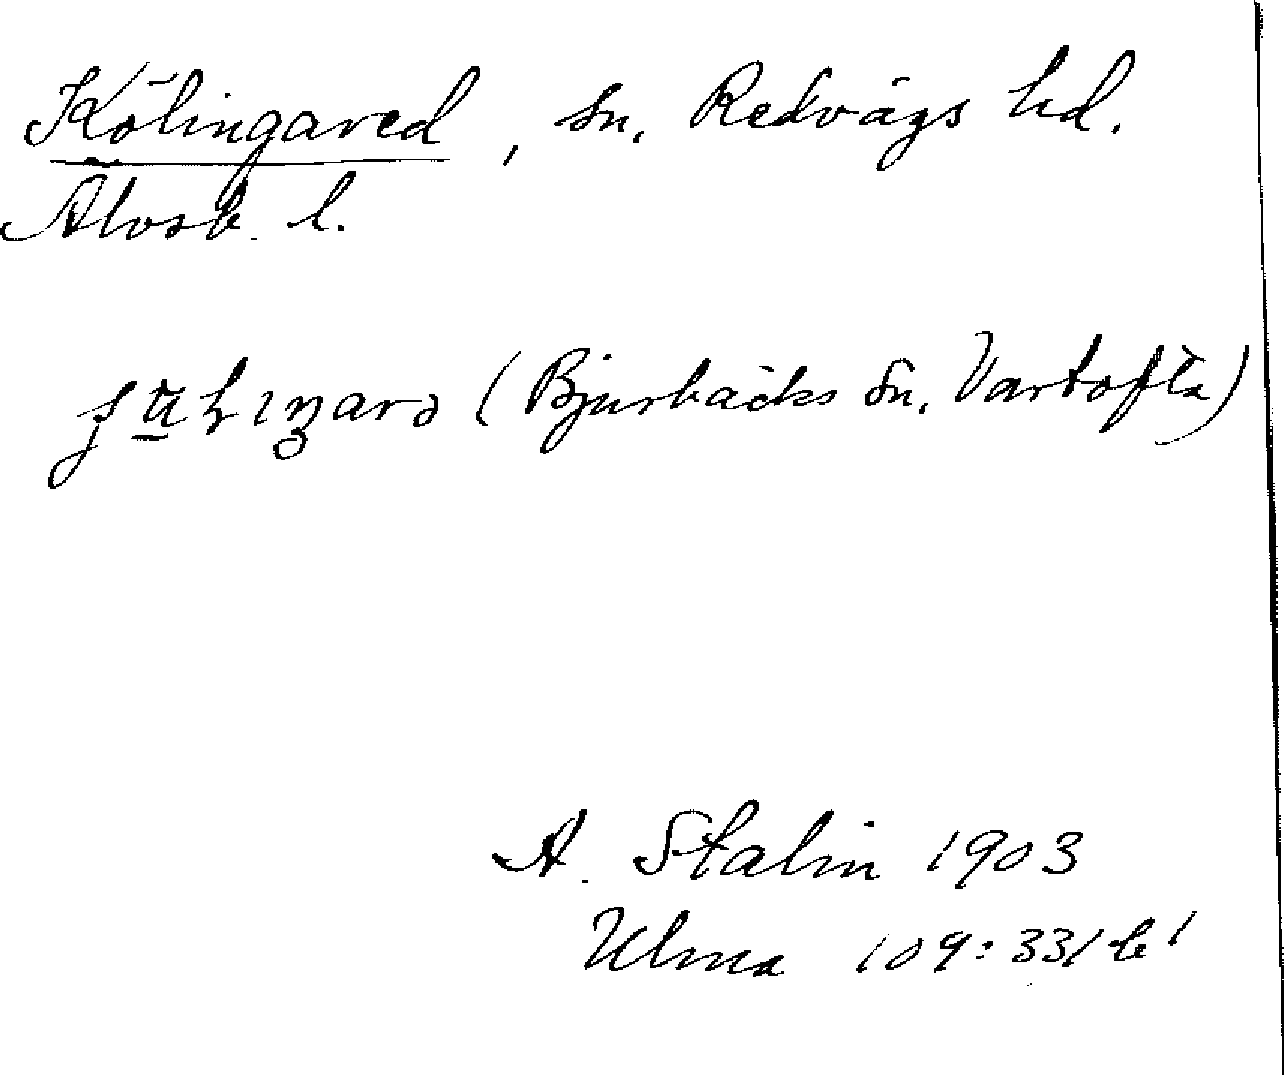 Kölingared, sn. Redvägs hd.
Älvsb. l.
(Bjurbäcks sn. Vartofta)
A. Stalin 1903
Ulma 109:331 b¹